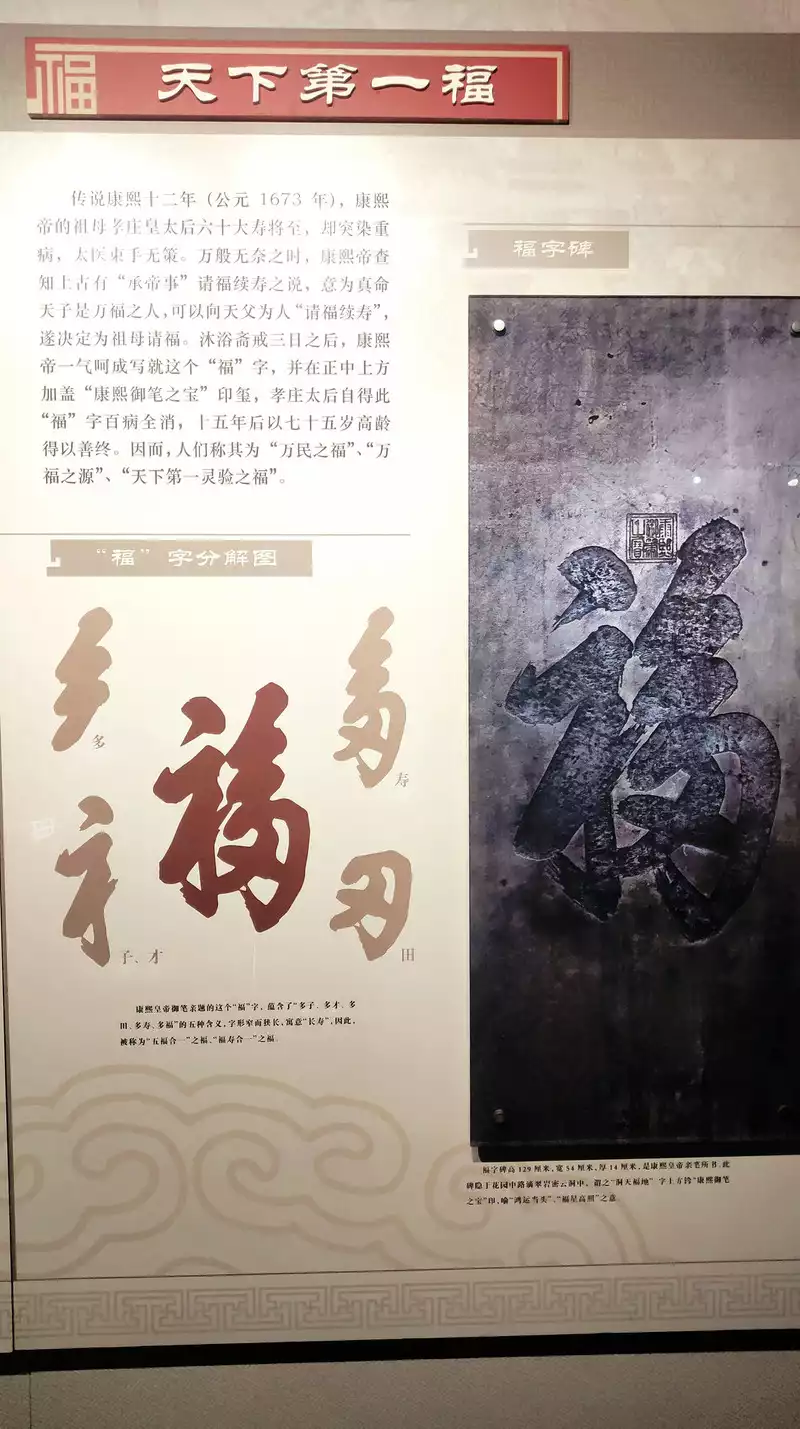 福
天下第一福
传说康熙十二年（公元 1673 年），康熙
帝的祖母孝庄皇太后六十大寿将至，却突染重
病，太医束手无策。万般无奈之时，康熙帝查
知上古有“承帝事”请福续寿之说，意为真命
天子是万福之人，可以向天父为人“请福续寿”，
遂决定为祖母请福。沐浴斋戒三日之后，康熙
帝一气呵成写就这个“福”字，并在正中上方
加盖“康熙御笔之宝”印玺，孝庄太后自得此
“福”字百病全消，十五年后以七十五岁高龄
得以善终。因而，人们称其为“万民之福”、“万
福之源”、“天下第一灵验之福”。
“福”字分解图
多
寿
福
子、才
田
康熙皇帝御笔亲题的这个“福”字，蕴含了“多子、多才、多
田、多寿、多福”的五种含义，字形窄而狭长，寓意“长寿”，因此，
被称为“五福合一”之福、“福寿合一”之福。
福字碑
康熙御笔之宝
福
福字碑高 129 厘米，宽 54 厘米，厚 14 厘米，是康熙皇帝亲笔所书。此
碑隐于花园中路滴翠岩密云洞中，谓之“洞天福地”字上方钤“康熙御笔
之宝”印，喻“鸿运当头”、“福星高照”之意。